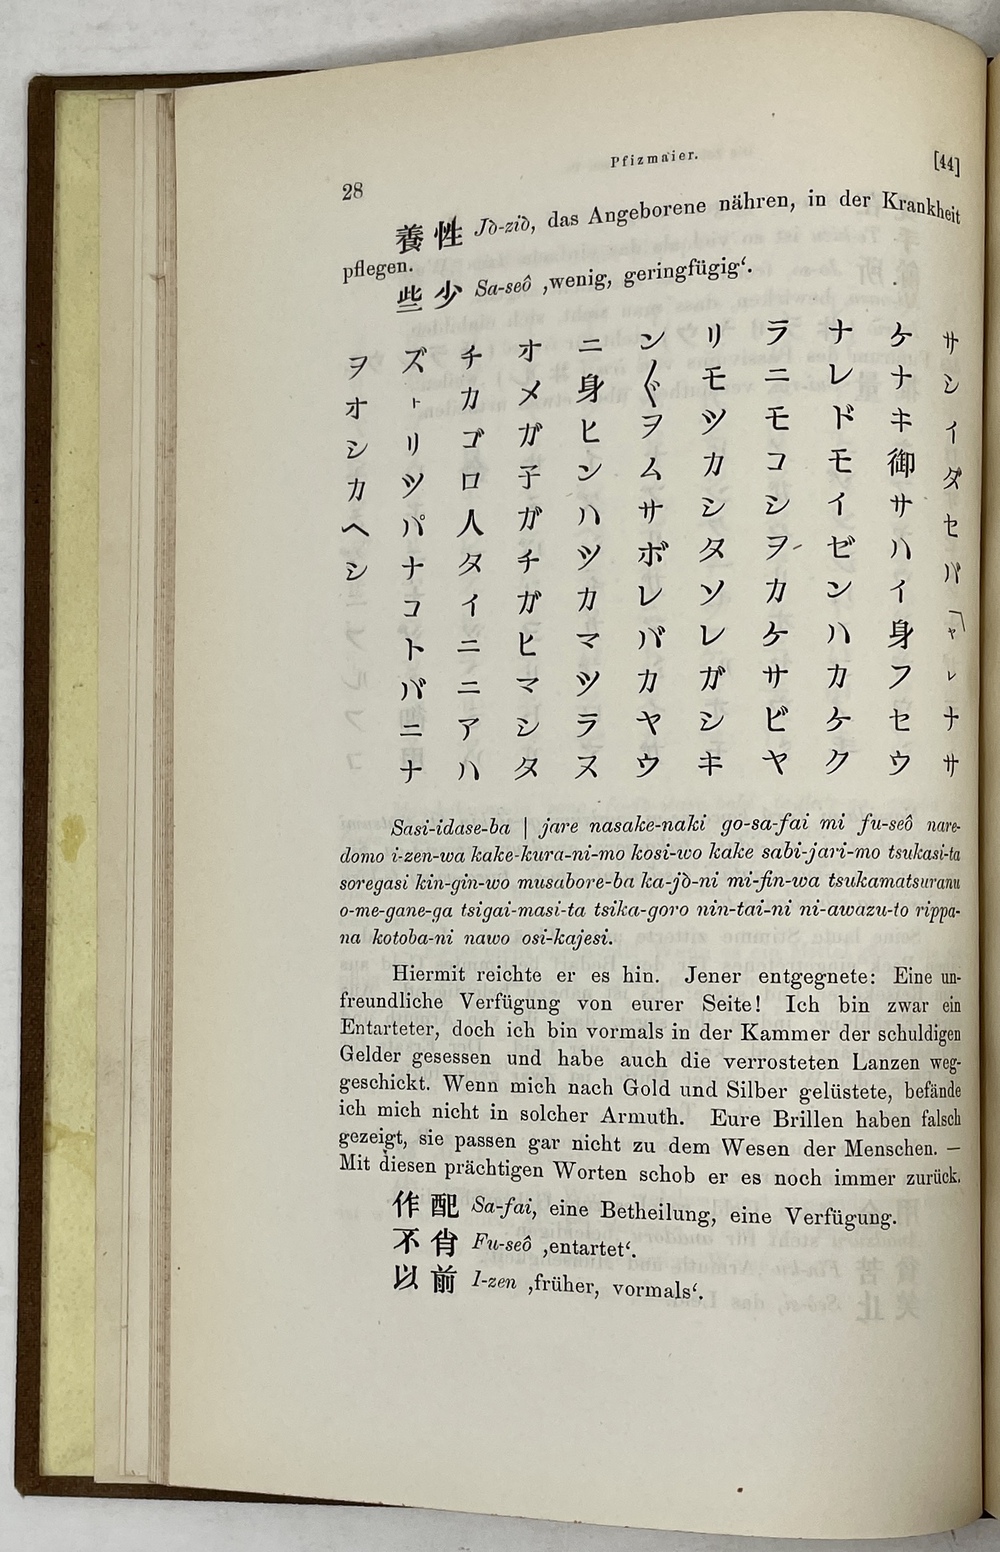 28
Pfizmaier.
[44]
養 性 Jò-ziò, das Angeborene nähren, in der Krankheit
pflegen.
些 少 Sa-seô ‚wenig, geringfügig‘.
サシイダセバ﹁ヤレナサ
ケナキ御サハイ身フセウ
ナレドモイゼンハカケク
ラニモコシヲカケサビヤ
リモツカシタソレガシキ
ン〲ヲムサボレバカヤウ
ニ身ヒンハツカマツラヌ
オメガ子ガチガヒマシタ
チカゴロ人タイニニアハ
ズトリツパナコトバニナ
ヲオシカヘシ
Sasi-idase-ba | jare nasake-naki go-sa-fai mi fu-seô nare-
domo i-zen-wa kake-kura-ni-mo kosi-wo kake sabi-jari-mo tsukasi-ta
soregasi kin-gin-wo musabore-ba ka-jò-ni mi-fin-wa tsukamatsuranu
o-me-gane-ga tsigai-masi-ta tsika-goro nin-tai-ni ni-awazu-to rippa-
na kotoba-ni nawo osi-kajesi.
Hiermit reichte er es hin. Jener entgegnete: Eine un-
freundliche Verfügung von eurer Seite! Ich bin zwar ein
Entarteter, doch ich bin vormals in der Kammer der schuldigen
Gelder gesessen und habe auch die verrosteten Lanzen weg-
geschickt. Wenn mich nach Gold und Silber gelüstete, befände
ich mich nicht in solcher Armuth. Eure Brillen haben falsch
gezeigt, sie passen gar nicht zu dem Wesen der Menschen. —
Mit diesen prächtigen Worten schob er es noch immer zurück.
作 配 Sa-fai, eine Betheilung, eine Verfügung.
不 肖 Fu-seô ‚entartet‘.
以 前 I-zen ‚früher, vormals‘.